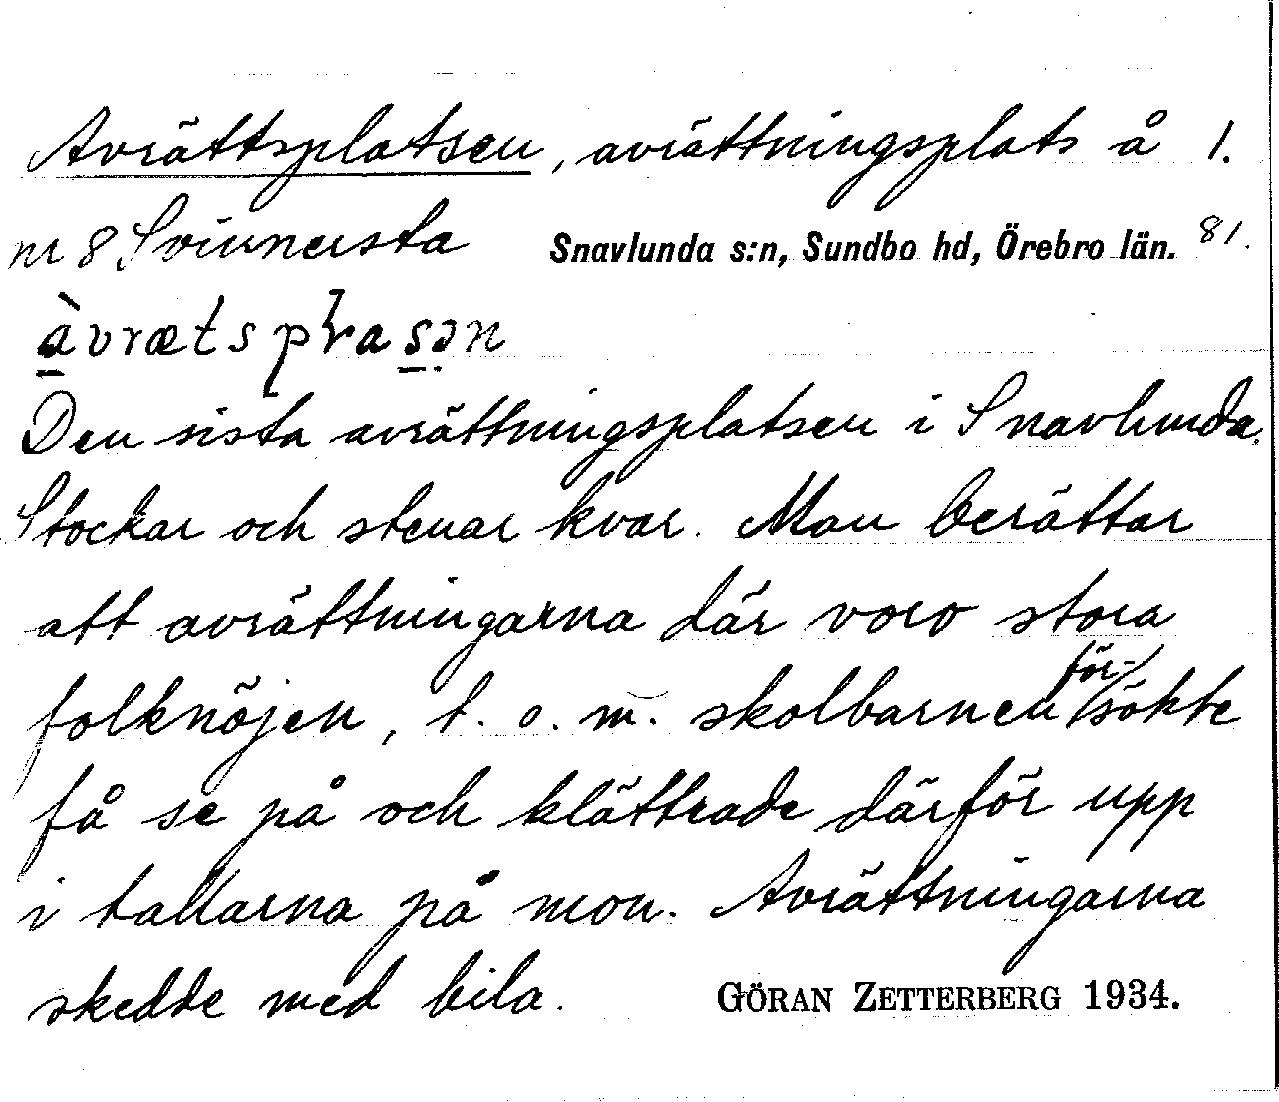 Avrättsplatsen, avrättningsplats å 1.
nr 8 Svinnersta Snavlunda s:n, Sundbo hd, Örebro län. 81.
àvrætsplasən
Den sista avrättningsplatsen i Snavlunda.
Stockar och stenar kvar. Man berättar
att avrättningarna där voro stora
folknöjen, t. o. m. skolbarnen försökte
få se på och klättrade därför upp
i tallarna på mon. Avrättningarna
skedde med bila. GÖRAN ZETTERBERG 1934.